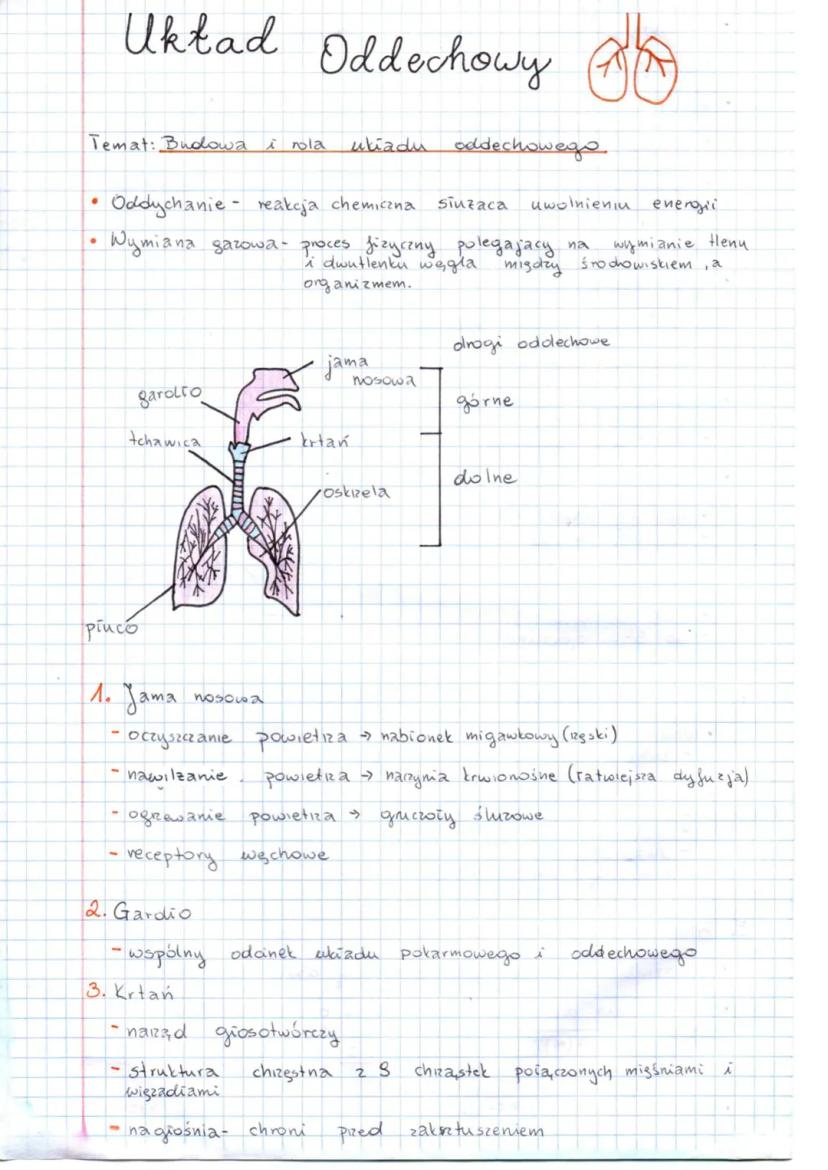 Układ Oddechowy
Temat: Budowa i rola układu oddechowego
• Oddychanie - reakcja chemiczna służaca uwolnieniu energii
• Wymiana gazowa - proces fizyczny polegajacy na wymianie tlenu
i dwutlenku węgla między środowiskiem, a
organizmem.
drogi oddechowe
jama
nosowa
gardło
górne
tchawica
krtań
dolne
oskrzela
płuco
1. Jama nosowa
- oczyszczanie powietrza → nabłonek migawkowy (rzęski)
- nawilżanie . powietrza → naczynia krwionośne (łatwiejsza dyfuzja)
- ogrzewanie powietrza → gruczoły śluzowe
- receptory węchowe
2. Gardło
- wspólny odcinek układu pokarmowego i oddechowego
3. Krtań
- narząd głosotwórczy
- struktura chrzęstna z 8 chrząstek połączonych mięśniami i
więzadłami
- nagłośnia - chroni przed zakrztuszeniem